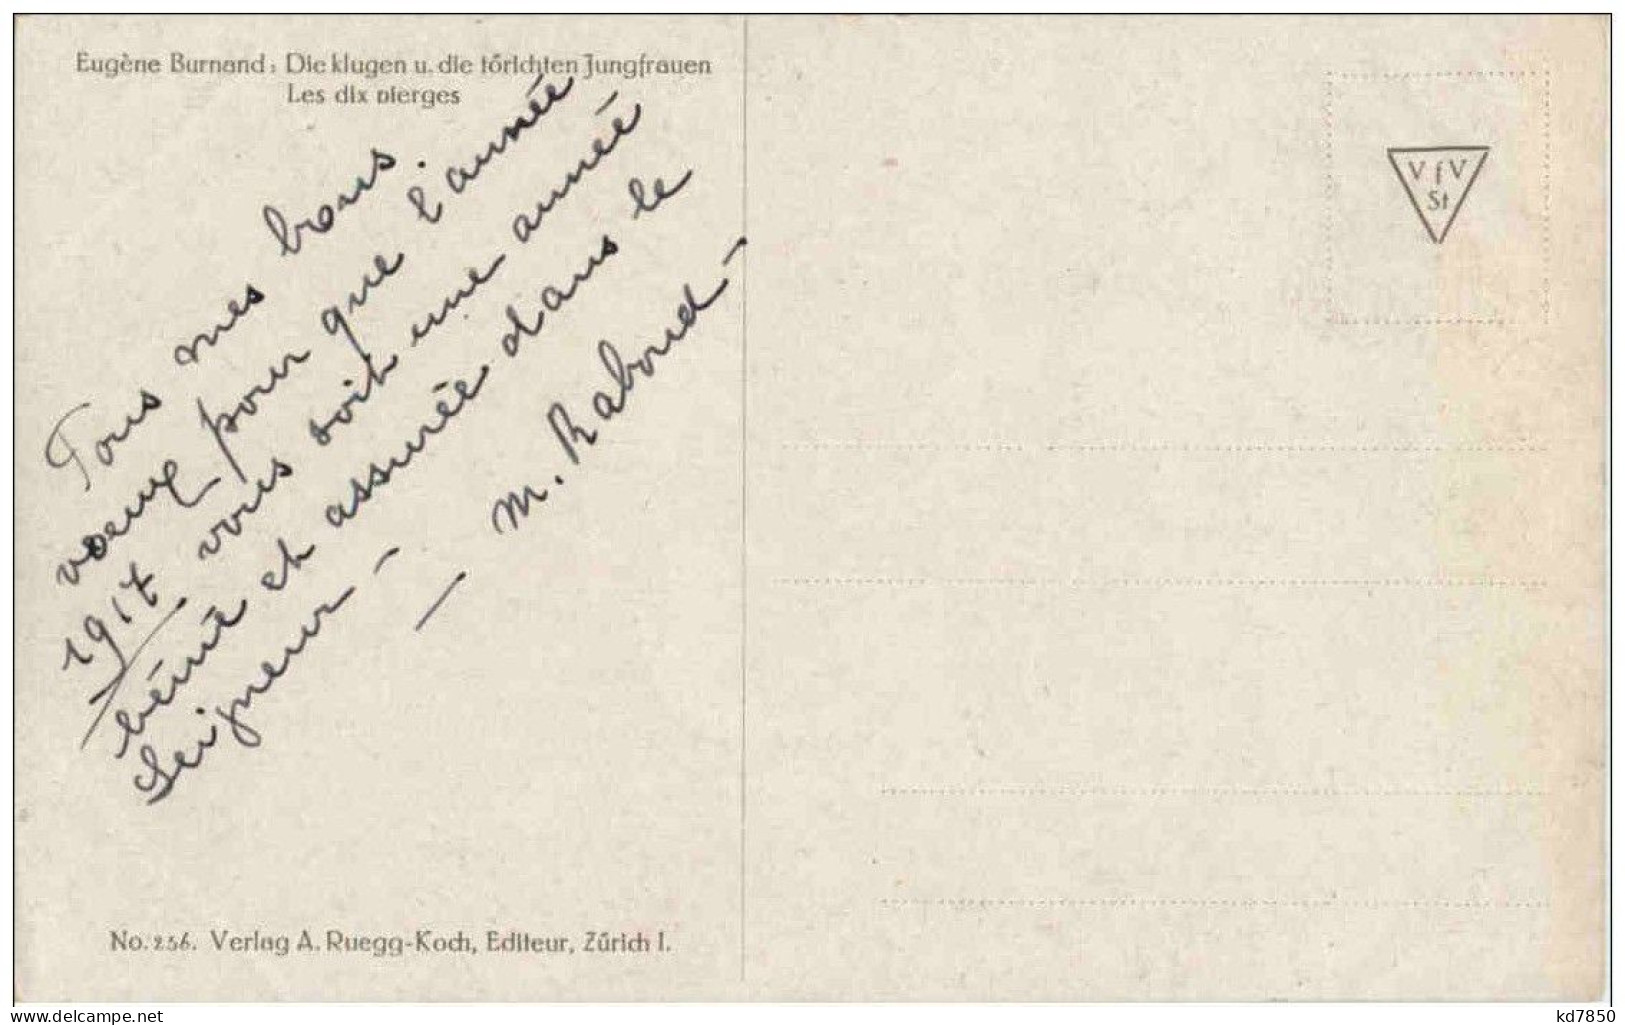 Eugène Burnand: Die klugen u. die törichten Jungfrauen
Les dix vierges
Tous mes bons
voeux pour que l'année
1917 vous soit une année
bénie et assurée dans le
Seigneur —
— M. Raboud —
V f V
St
No. 256. Verlag A. Ruegg-Koch, Editeur, Zürich I.
delcampe.net
kd7850